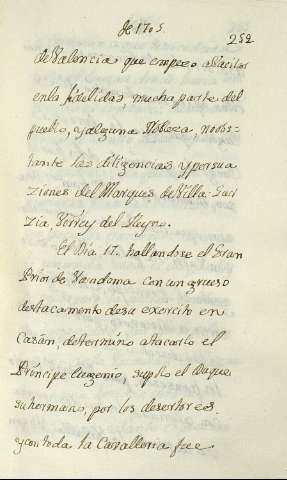 de 1705
252
de Valencia que empezo a Vacilar
en la fidelidad, mucha parte del
pueblo, y alguna Nobleza, no obs-
tante las diligencias, y persua
ziones del Marques de Villa Gar
zia, Virrey del Reyno.
El Dia 17. hallandose el Gran
Prior de Vandoma con un grueso
destacamento de su exercito en
Casán, determinó atacarlo el
Príncipe Eugenio, suplo el Duque
su hermano, por los desertores,
y con toda la Cavalleria fue